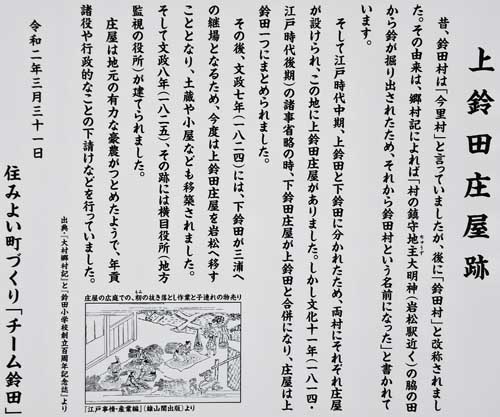 上鈴田庄屋跡
昔、鈴田村は「今里村」と言っていましたが、後に「鈴田村」と改称されまし
た。その由来は、郷村記によれば「村の鎮守地主大明神(岩松駅近く)の脇の田
から鈴が掘り出されたため、それから鈴田村という名前になった」と書かれて
います。
そして江戸時代中期、上鈴田と下鈴田に分かれたため、両村にそれぞれ庄屋
が設けられ、この地に上鈴田庄屋がありました。しかし文化十一年(一八一四
江戸時代後期)の諸事省略の時、下鈴田庄屋が上鈴田と合併になり、庄屋は上
鈴田一つにまとめられました。
その後、文政七年(一八二四)には、下鈴田が三浦へ
の継場となるため、今度は上鈴田庄屋を岩松へ移す
こととなり、土蔵や小屋なども移築されました。
そして文政八年(一八二五)、その跡には横目役所(地方
監視の役所)が建てられました。
庄屋は地元の有力な豪農がつとめたようで、年貢
諸役や行政的なことの下請けなどを行っていました。
庄屋の広庭での、籾の抜き落とし作業と子連れの物売り
『江戸事情・産業編』(雄山閣出版)より
出典・『大村郷村記』と『鈴田小学校創立百周年記念誌』より
令和二年三月三十一日
住みよい町づくり「チーム鈴田」